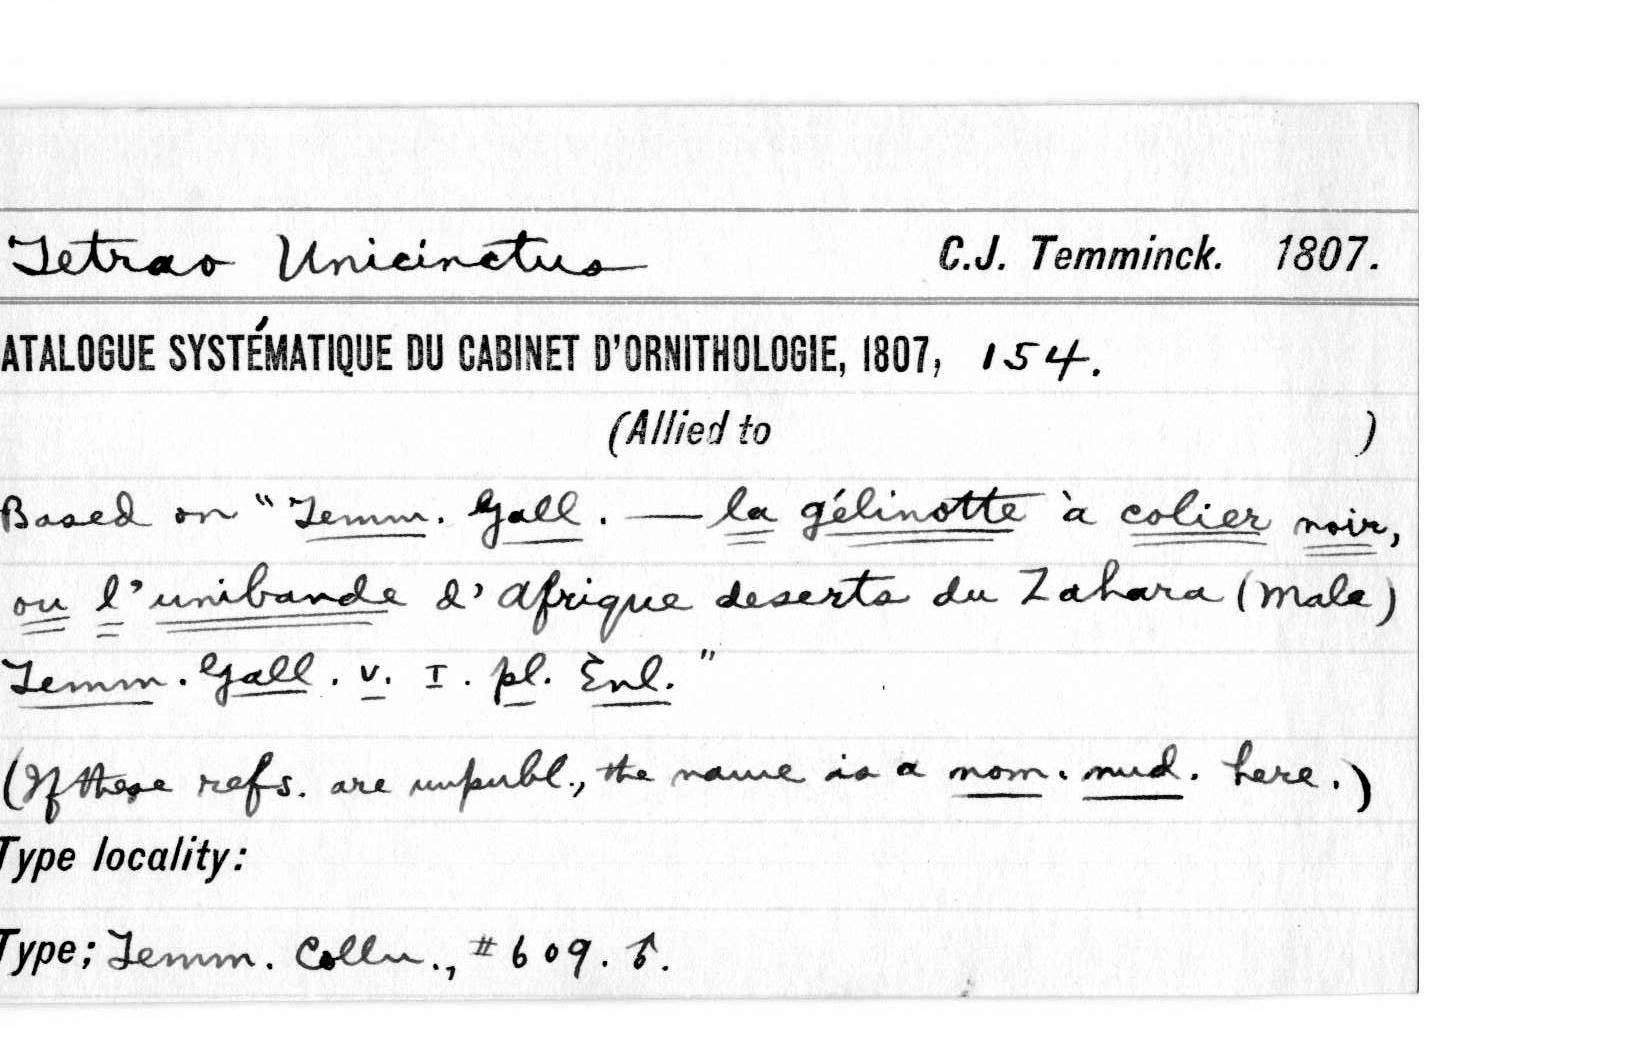 Tetrao Unicinctus C.J. Temminck. 1807.
ATALOGUE SYSTÉMATIQUE DU CABINET D'ORNITHOLOGIE, 1807, 154.
(Allied to )
Based on "Temm. Gall. — la gélinotte à colier noir,
ou l'unibande d'Afrique deserts du Zahara (Male)
Temm. Gall. v. I. pl. Ènl."
(If these refs. are unpubl., the name is a nom. nud. here.)
Type locality:
Type; Temm. Colln., #609. ♂.